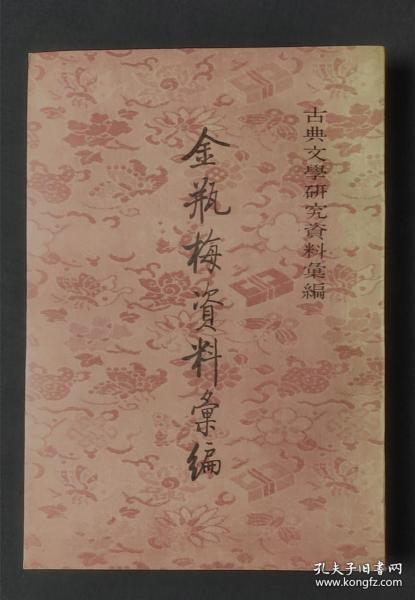 古典文學研究資料彙編
金瓶梅資料彙編
孔夫子旧书网
www.kongfz.com